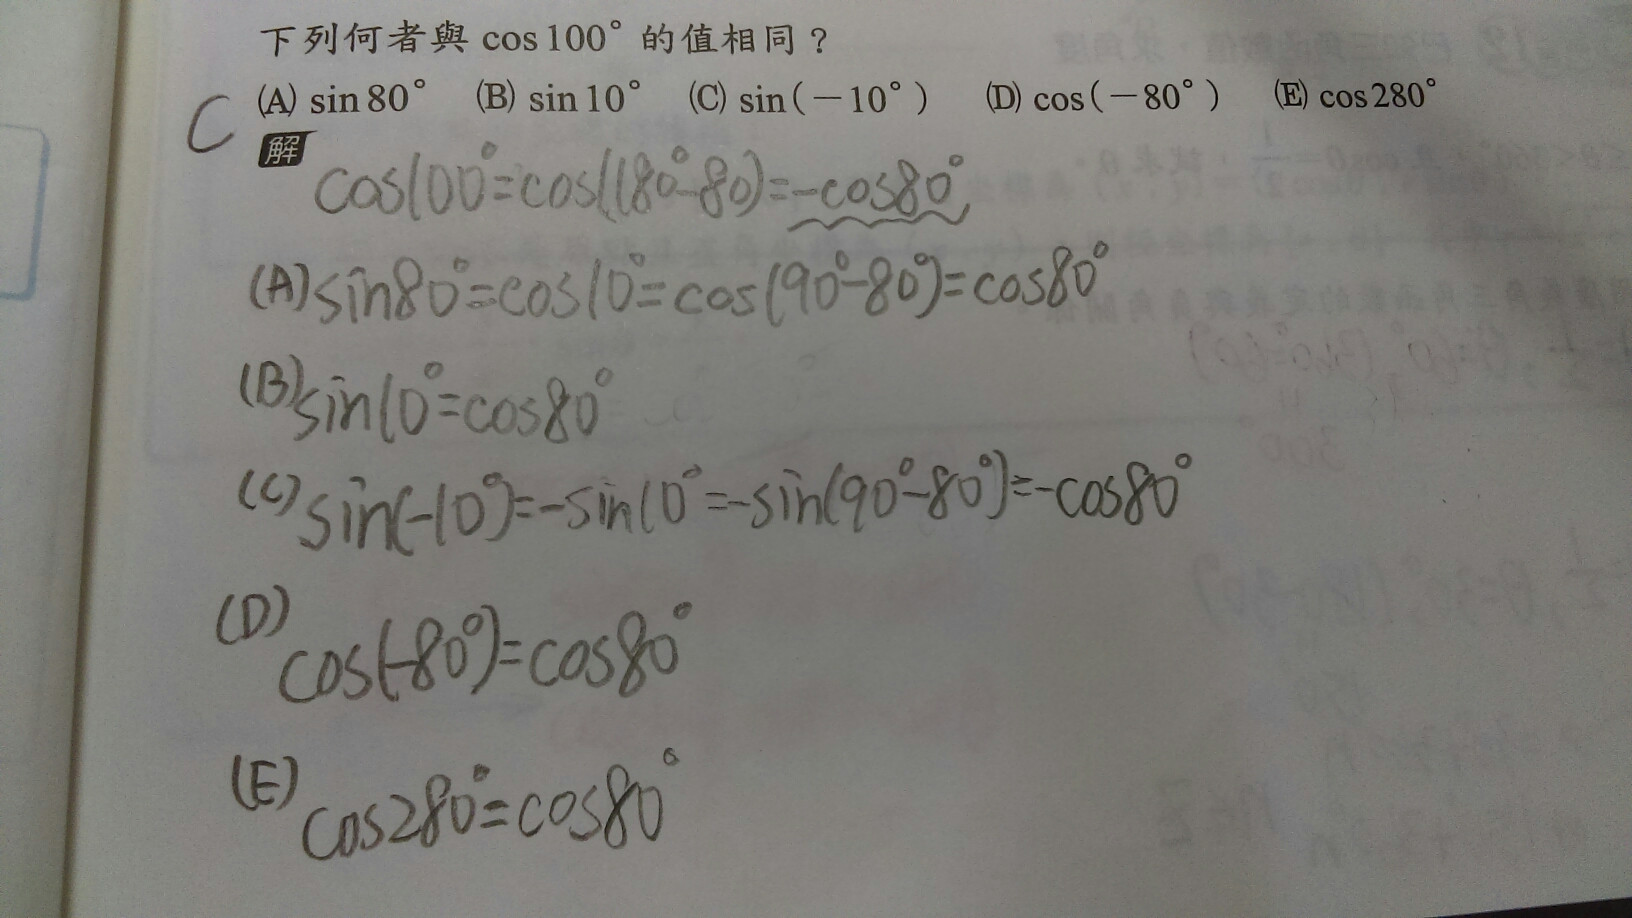 下列何者與 cos 100° 的值相同？
(A) sin 80° (B) sin 10° (C) sin(－10°) (D) cos(－80°) (E) cos 280°
C
解
cos100°=cos(180°-80)=-cos80°
(A) sin80°=cos10°=cos(90°-80°)=cos80°
(B) sin10°=cos80°
(C) sin(-10°)=-sin10°=-sin(90°-80°)=-cos80°
(D) cos(-80°)=cos80°
(E) cos280°=cos80°